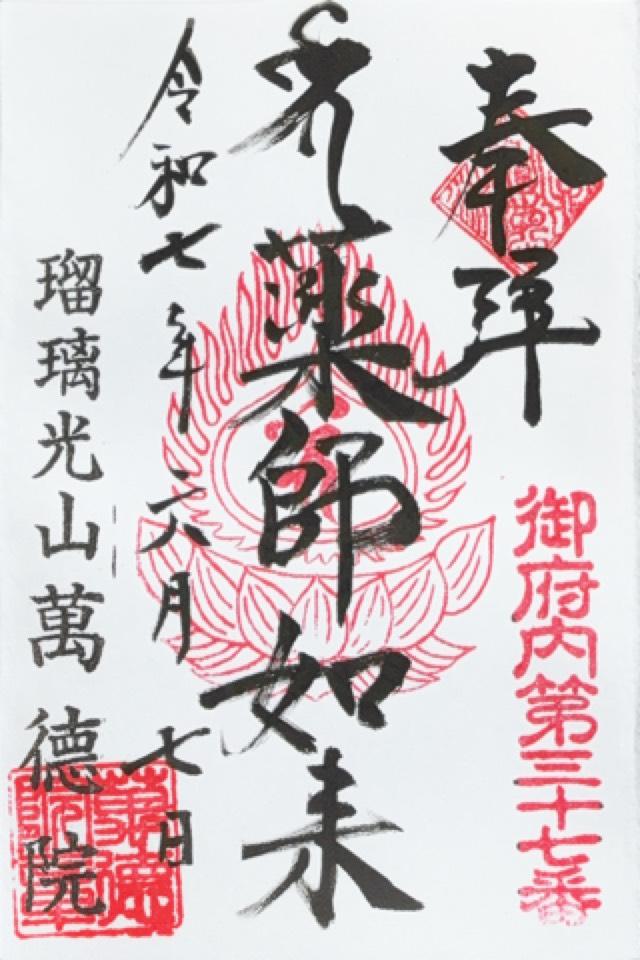 奉拝
御府内第三十七番
薬師如来
令和七年六月七日
瑠璃光山萬德院